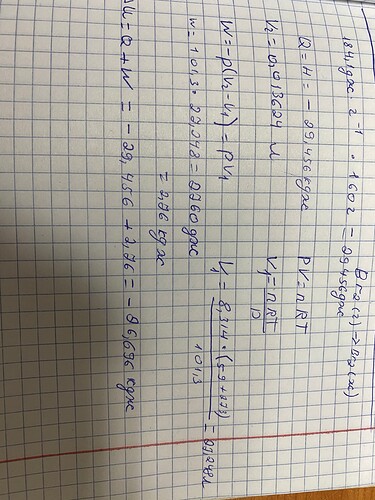 Br2(г) → Br2(ж)
184,1 дж г⁻¹ · 160 г = 29456 дж
Q = H = - 29,456 кдж
PV = nRT
V2 = 0,013624 л
V1 = nRT/P
W = -p(V2 - V1) = PV1
V1 = 8,314 · (59+273)/101,3 = 27,248 л
W = 101,3 · 27,248 = 2760 дж
= 2,76 кдж
ΔU = Q + W = - 29,456 + 2,76 = - 26,696 кдж